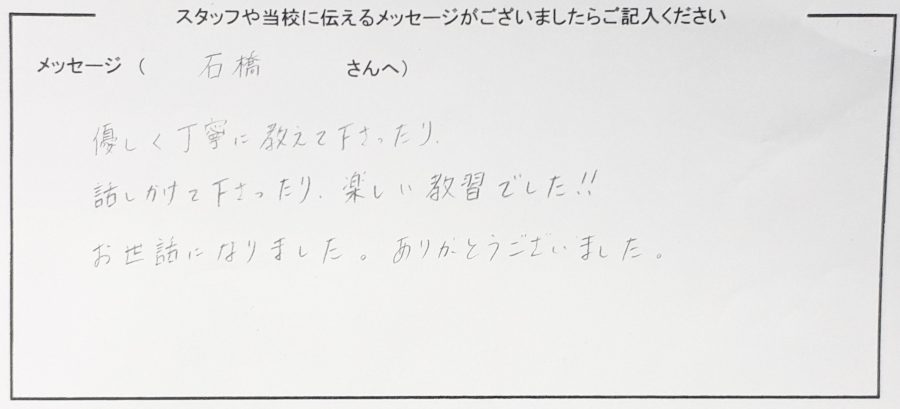 スタッフや当校に伝えるメッセージがございましたらご記入ください
メッセージ ( 石橋 さんへ)
優しく丁寧に教えて下さったり、
話しかけて下さったり、楽しい教習でした!!
お世話になりました。ありがとうございました。